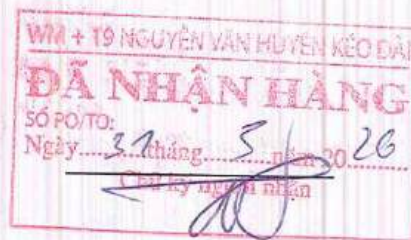 WM + T9 NGUYỄN VĂN HUYÊN KÉO DÀI
ĐÃ NHẬN HÀNG
SỐ PO/TO:
Ngày.....31.tháng.....5.....năm 20.26.....
Chữ ký người nhận